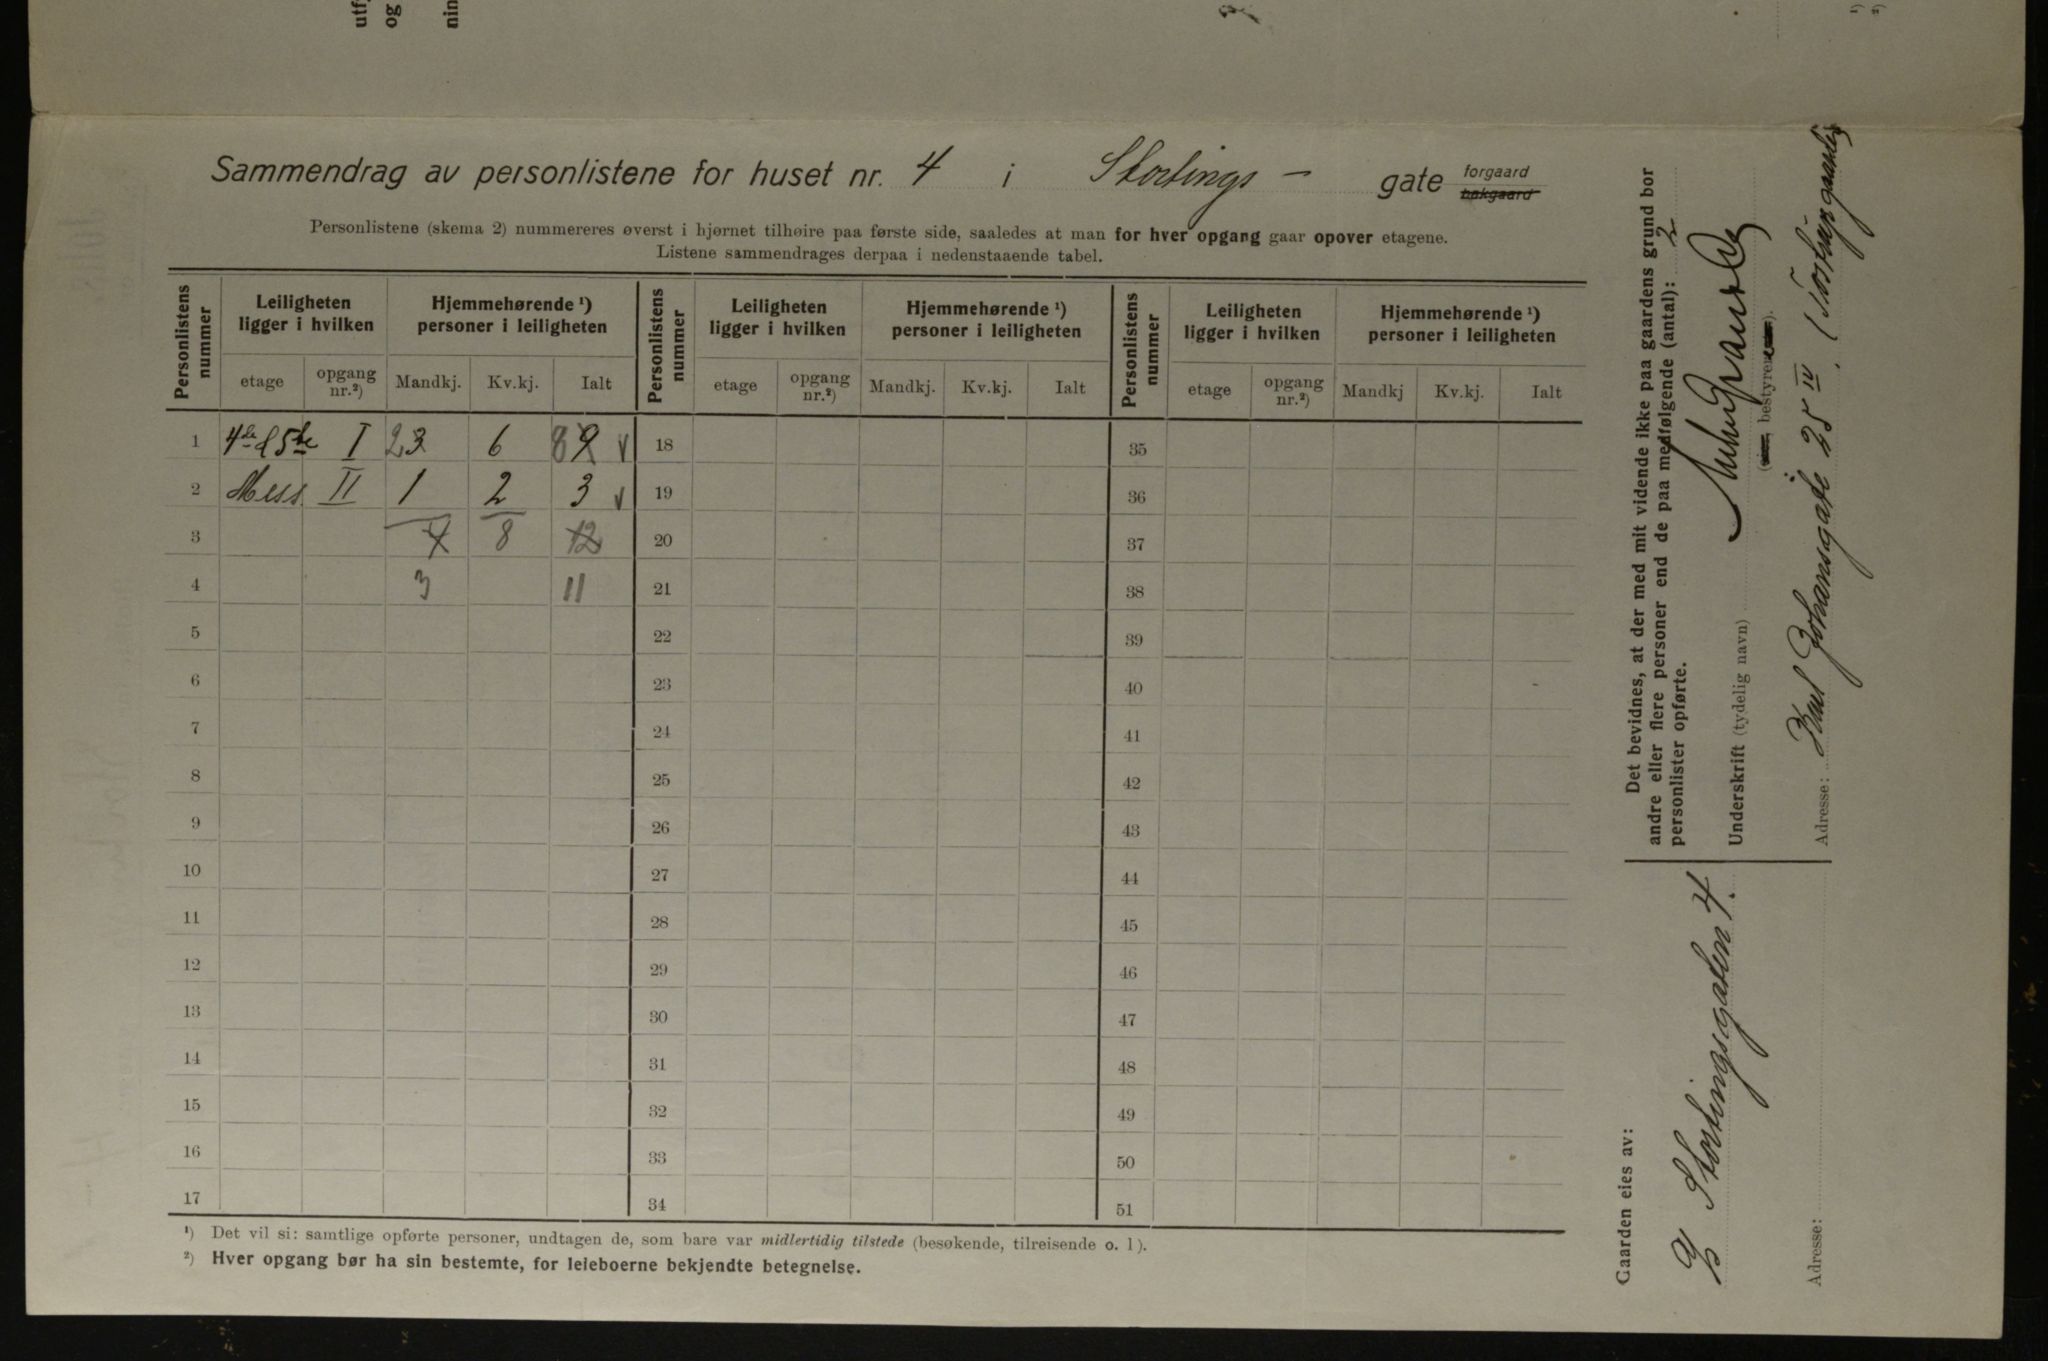 Sammendrag av personlistene for huset nr. 4 i Stortings - gate forgaard bakgaard
Personlistene (skema 2) nummereres øverst i hjørnet tilhøire paa første side, saaledes at man for hver opgang gaar opover etagene.
Listene sammendrages derpaa i nedenstaaende tabel.
Personlistens nummer Leiligheten ligger i hvilken Hjemmehørende ¹) personer i leiligheten Personlistens nummer Leiligheten ligger i hvilken Hjemmehørende ¹) personer i leiligheten Personlistens nummer Leiligheten ligger i hvilken Hjemmehørende ¹) personer i leiligheten
etage opgang nr.²) Mandkj. Kv.kj. Ialt etage opgang nr.²) Mandkj. Kv.kj. Ialt etage opgang nr.²) Mandkj Kv.kj. Ialt
1 4de & 5te I 2 3 6 8 9 v 18 35
2 Mess. II 1 2 3 v 19 36
3 4 8 12 20 37
4 3 11 21 38
5 22 39
6 23 40
7 24 41
8 25 42
9 26 43
10 27 44
11 28 45
12 29 46
13 30 47
14 31 48
15 32 49
16 33 50
17 34 51
¹) Det vil si: samtlige opførte personer, undtagen de, som bare var midlertidig tilstede (besøkende, tilreisende o. l).
²) Hver opgang bør ha sin bestemte, for leieboerne bekjendte betegnelse.
Det bevidnes, at der med mit vidende ikke paa gaardens grund bor
andre eller flere personer end de paa medfølgende (antal): 2
personlister opførte.
Underskrift (tydelig navn)
bestyrer
Adresse: Karl Johansgate 25 IV
Gaarden eies av:
Stortingsgaten 4.
Adresse: